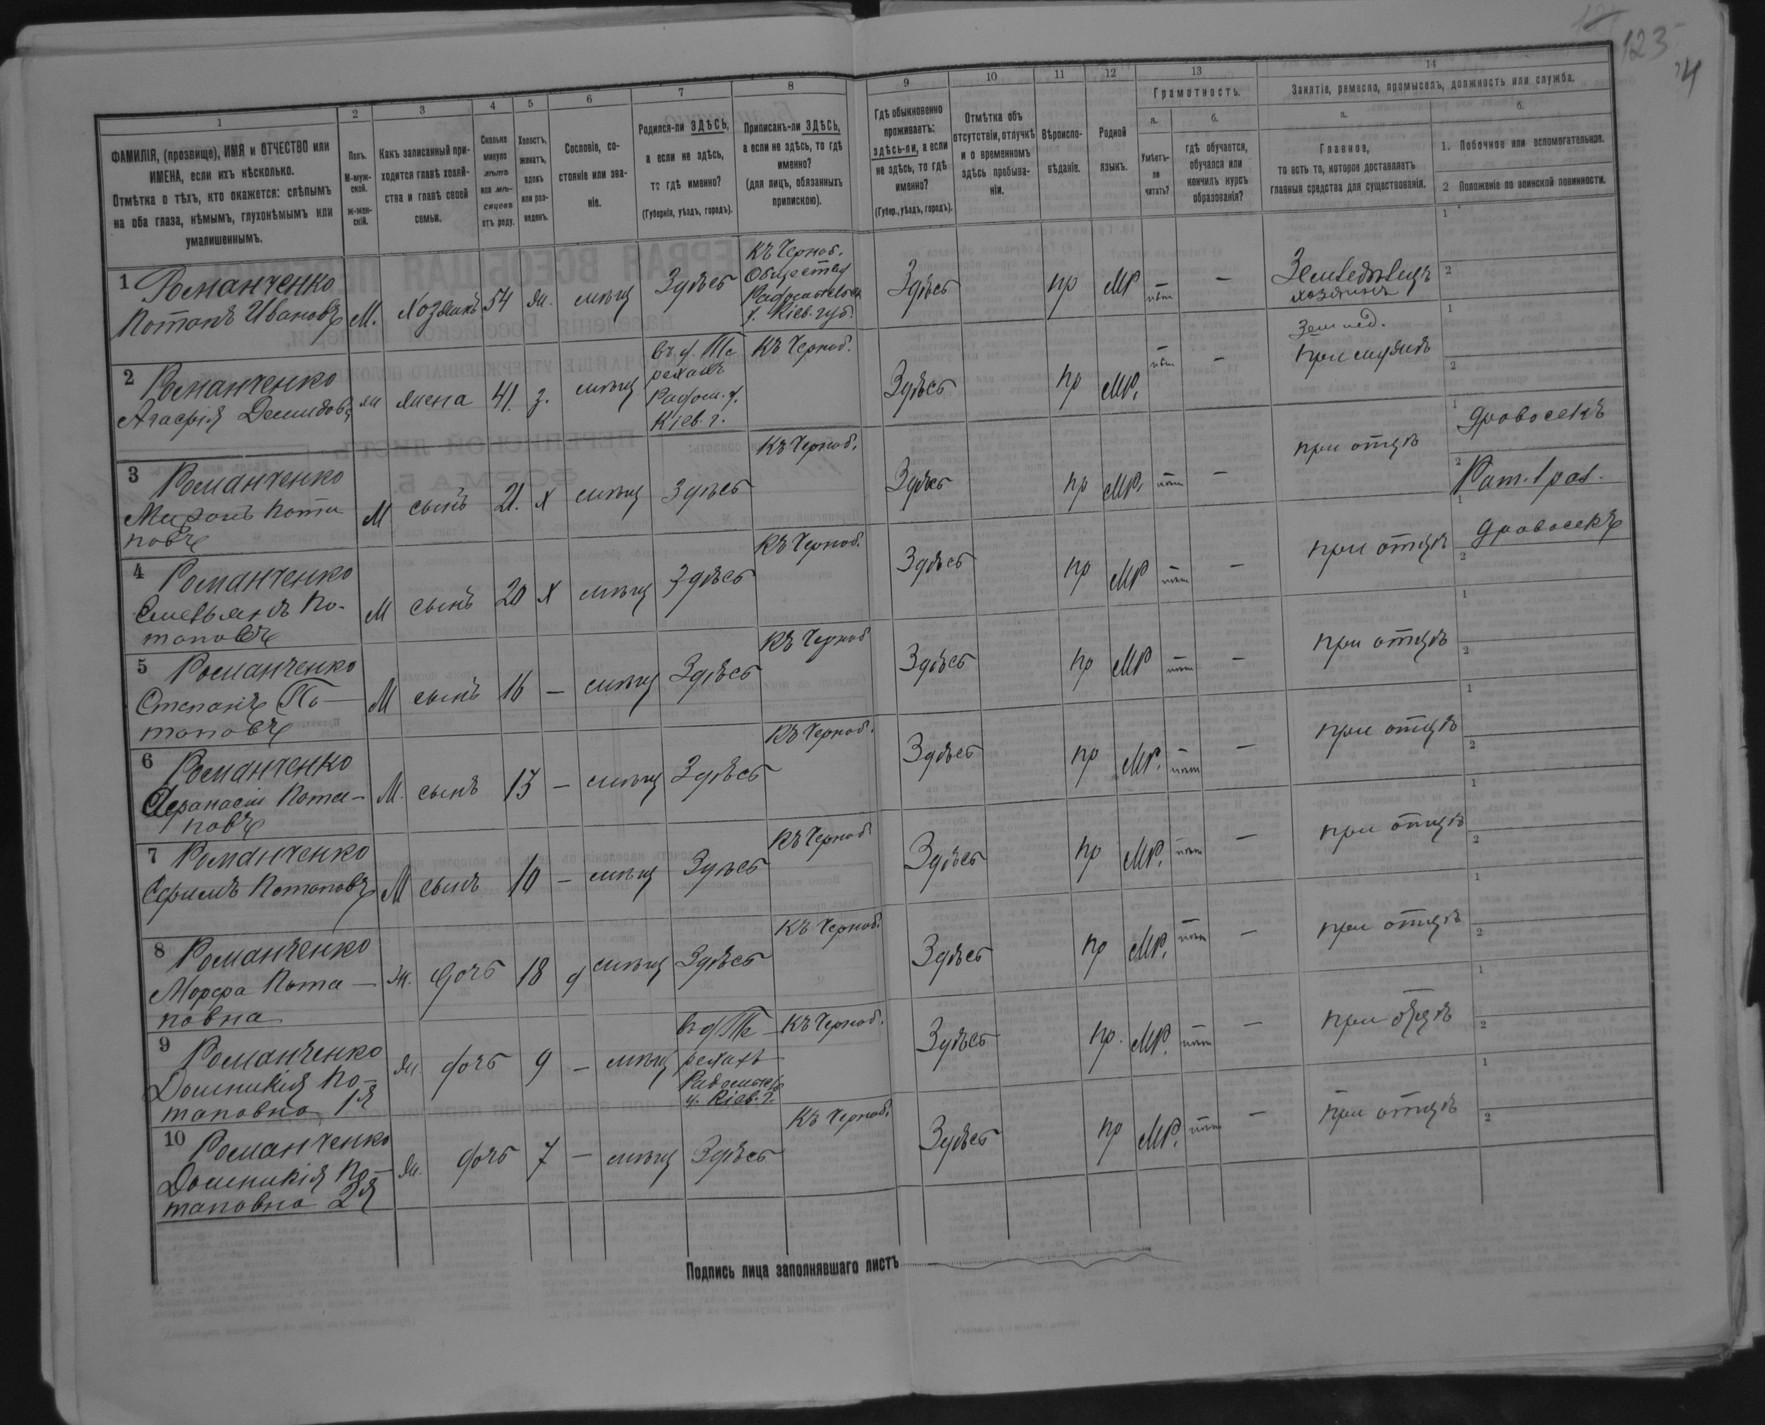 123
4
1
2
3
4
5
6
7
8
9
10
11
12
13
14
ФАМИЛІЯ, (прозвище), ИМЯ и ОТЧЕСТВО или
ИМЕНА, если ихъ нѣсколько.
Отмѣтка о тѣхъ, кто окажется: слѣпымъ
на оба глаза, нѣмымъ, глухонѣмымъ или
умалишеннымъ.
Полъ.
М-муж-
ской.
Ж-жен-
скій.
Какъ записанный при-
ходится главѣ хозяй-
ства и главѣ своей
семьи.
Сколько
минуло
лѣтъ
или мѣ-
сяцевъ
отъ роду.
Холостъ,
женатъ,
вдовъ
или раз-
веденъ.
Сословіе, со-
стояніе или зва-
ніе.
Родился-ли ЗДѢСЬ,
а если не здѣсь,
то гдѣ именно?
(Губернія, уѣздъ, городъ).
Приписанъ-ли ЗДѢСЬ,
а если не здѣсь, то гдѣ
именно?
(для лицъ, обязанныхъ
припискою).
Гдѣ обыкновенно
проживаетъ:
здѣсь-ли, а если
не здѣсь, то гдѣ
именно?
(Губер., уѣздъ, городъ).
Отмѣтка объ
отсутствіи, отлучкѣ
и о временномъ
здѣсь пребыва-
ніи.
Вѣроиспо-
вѣданіе.
Родной
языкъ.
Грамотность.
а.
Умѣетъ-
ли
читать?
б.
гдѣ обучается,
обучался или
кончилъ курсъ
образованія?
Занятіе, ремесло, промыселъ, должность или служба.
а.
Главное,
то есть то, которое доставляетъ
главныя средства для существованія.
б.
1. Побочное или вспомогательное.
2 Положеніе по воинской повинности.
1 Романченко
Потапъ Ивановъ М. хозяинъ 54 ж. мѣщ Здѣсь
Къ Черноб.
Обществу
Радомысльск
у. Кіев. губ.
Здѣсь пр МР нѣт —
Земледѣлецъ
хозяинъ
1
2
2 Романченко
Агафія Демидовъ ж жена 41. з. мѣщ
въ д. Те
рехахъ
Радом. у.
Кіев. г.
Къ Черноб.
Здѣсь пр МР. нѣт —
Землед.
при мужѣ
1
2
3 Романченко
Миронъ Пота
повъ
М сынъ 21. х мѣщ Здѣсь Къ Черноб. Здѣсь пр МР. нѣт — при отцѣ
1 дровосекъ
2 Рат. 1 раз.
4 Романченко
Емельянъ По-
таповъ
М сынъ 20 х мѣщ Здѣсь Къ Черноб. Здѣсь пр МР нѣт — при отцѣ
1 дровосекъ
2
5 Романченко
Степанъ По—
таповъ
М сынъ 16 — мѣщ Здѣсь Къ Черноб Здѣсь пр МР нѣт — при отцѣ
1
2
6 Романченко
Афанасій Пота—
повъ
М. сынъ 13 — мѣщ Здѣсь Къ Черноб. Здѣсь пр МР. нѣт — при отцѣ
1
2
7 Романченко
Ефимъ Потаповъ М сынъ 10 — мѣщ Здѣсь Къ Черноб Здѣсь пр МР. нѣт — при отцѣ
1
2
8 Романченко
Марфа Пота—
повна
ж. дочь 18 д мѣщ Здѣсь Къ Черноб. Здѣсь пр МР. нѣт — при отцѣ
1
2
9 Романченко
Домникія По—
таповна 1я
ж дочь 9 — мѣщ
въ д. Те—
рехахъ
Радомысл
у. Кіев. г.
Къ Черноб. Здѣсь пр. МР. нѣт — при отцѣ
1
2
10 Романченко
Домникія По—
таповна 2я
ж. дочь 7 — мѣщ Здѣсь Къ Черноб. Здѣсь пр МР. нѣт — при отцѣ
1
2
Подпись лица заполнявшаго листъ